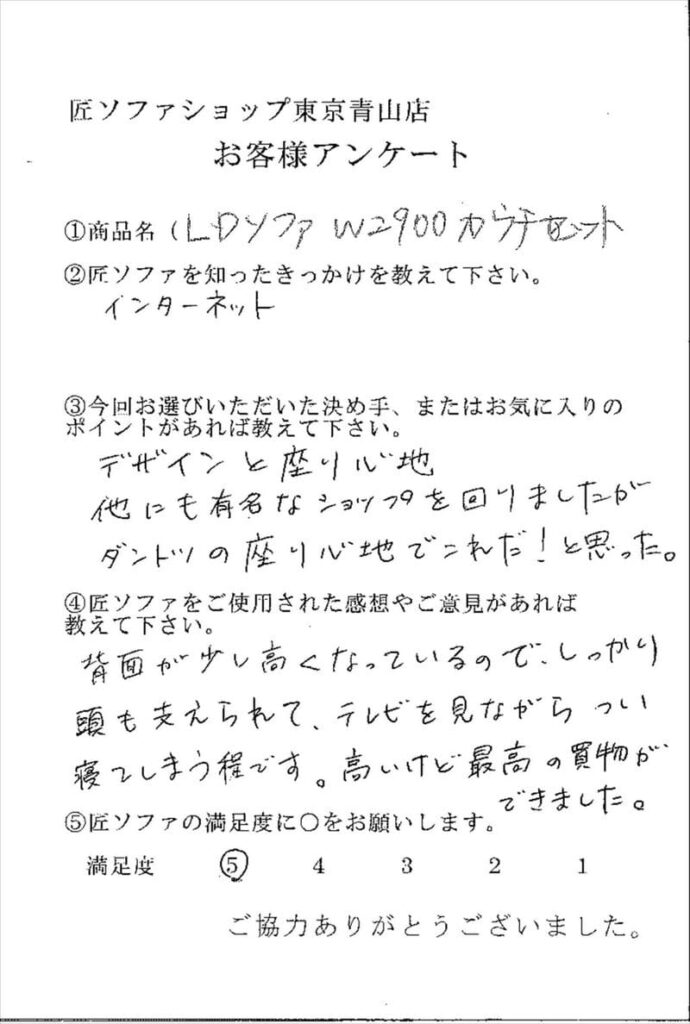 匠ソファショップ東京青山店
お客様アンケート
①商品名（LDソファ W2900 カウチセット
②匠ソファを知ったきっかけを教えて下さい。
インターネット
③今回お選びいただいた決め手、またはお気に入りの
ポイントがあれば教えて下さい。
デザインと座り心地
他にも有名なショップを回りましたが
ダントツの座り心地でこれだ！と思った。
④匠ソファをご使用された感想やご意見があれば
教えて下さい。
背面が少し高くなっているので、しっかり
頭も支えられて、テレビを見ながらつい
寝てしまう程です。高いけど最高の買物が
できました。
⑤匠ソファの満足度に〇をお願いします。
満足度 ⑤ 4 3 2 1
ご協力ありがとうございました。